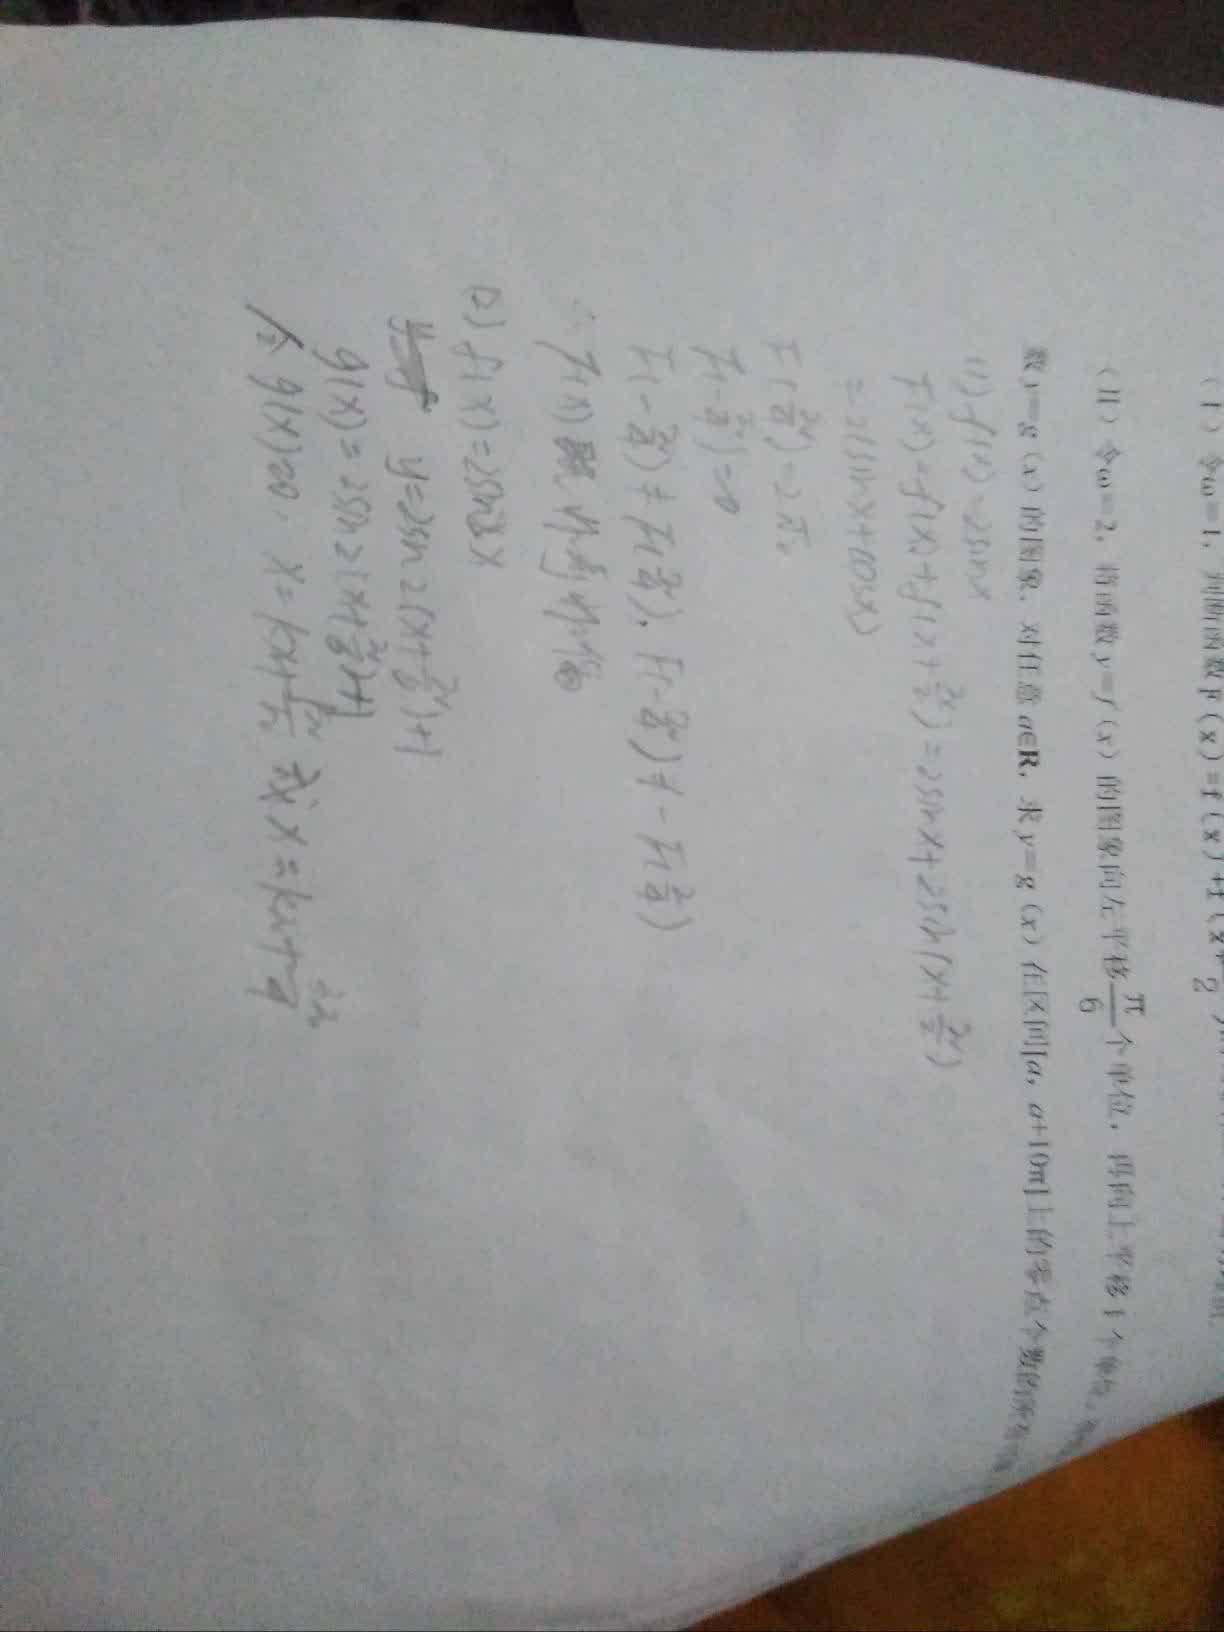 (Ⅰ)令ω=1,判断函数F(x)=f(x)+f(x+π/2)
(Ⅱ)令ω=2,将函数y=f(x)的图象向左平移π/6个单位,再向上平移1个单位,
数y=g(x)的图象.对任意a∈R,求y=g(x)在区间[a,a+10π]上的零点个数的所有
(1) f(x)=2sinx
F(x)=f(x)+f(x+π/2)=2sinx+2sin(x+π/2)
=2(sinx+cosx)
F(π/4)=2√2
F(-π/4)=0
F(-π/4)≠F(π/4), F(-π/4)≠-F(π/4)
∴F(x) 非奇非偶
(2) f(x)=2sin2x
y=2sin2(x+π/6)+1
g(x)=2sin2(x+π/6)+1
令g(x)=0, x=kπ+5π/12 或 x=kπ+